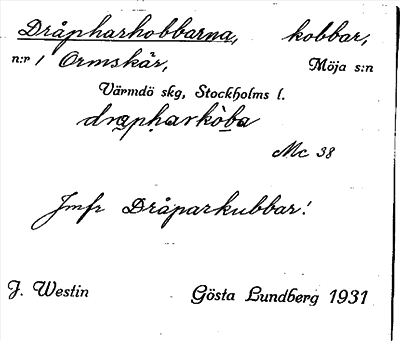 Dråpharkobbarna, kobbar,
n:r 1 Ormskär, Möja s:n
Värmdö skg, Stockholms l.
drapharkòba
Mc 38
Jmfr Dråparkubbar!
J. Westin Gösta Lundberg 1931